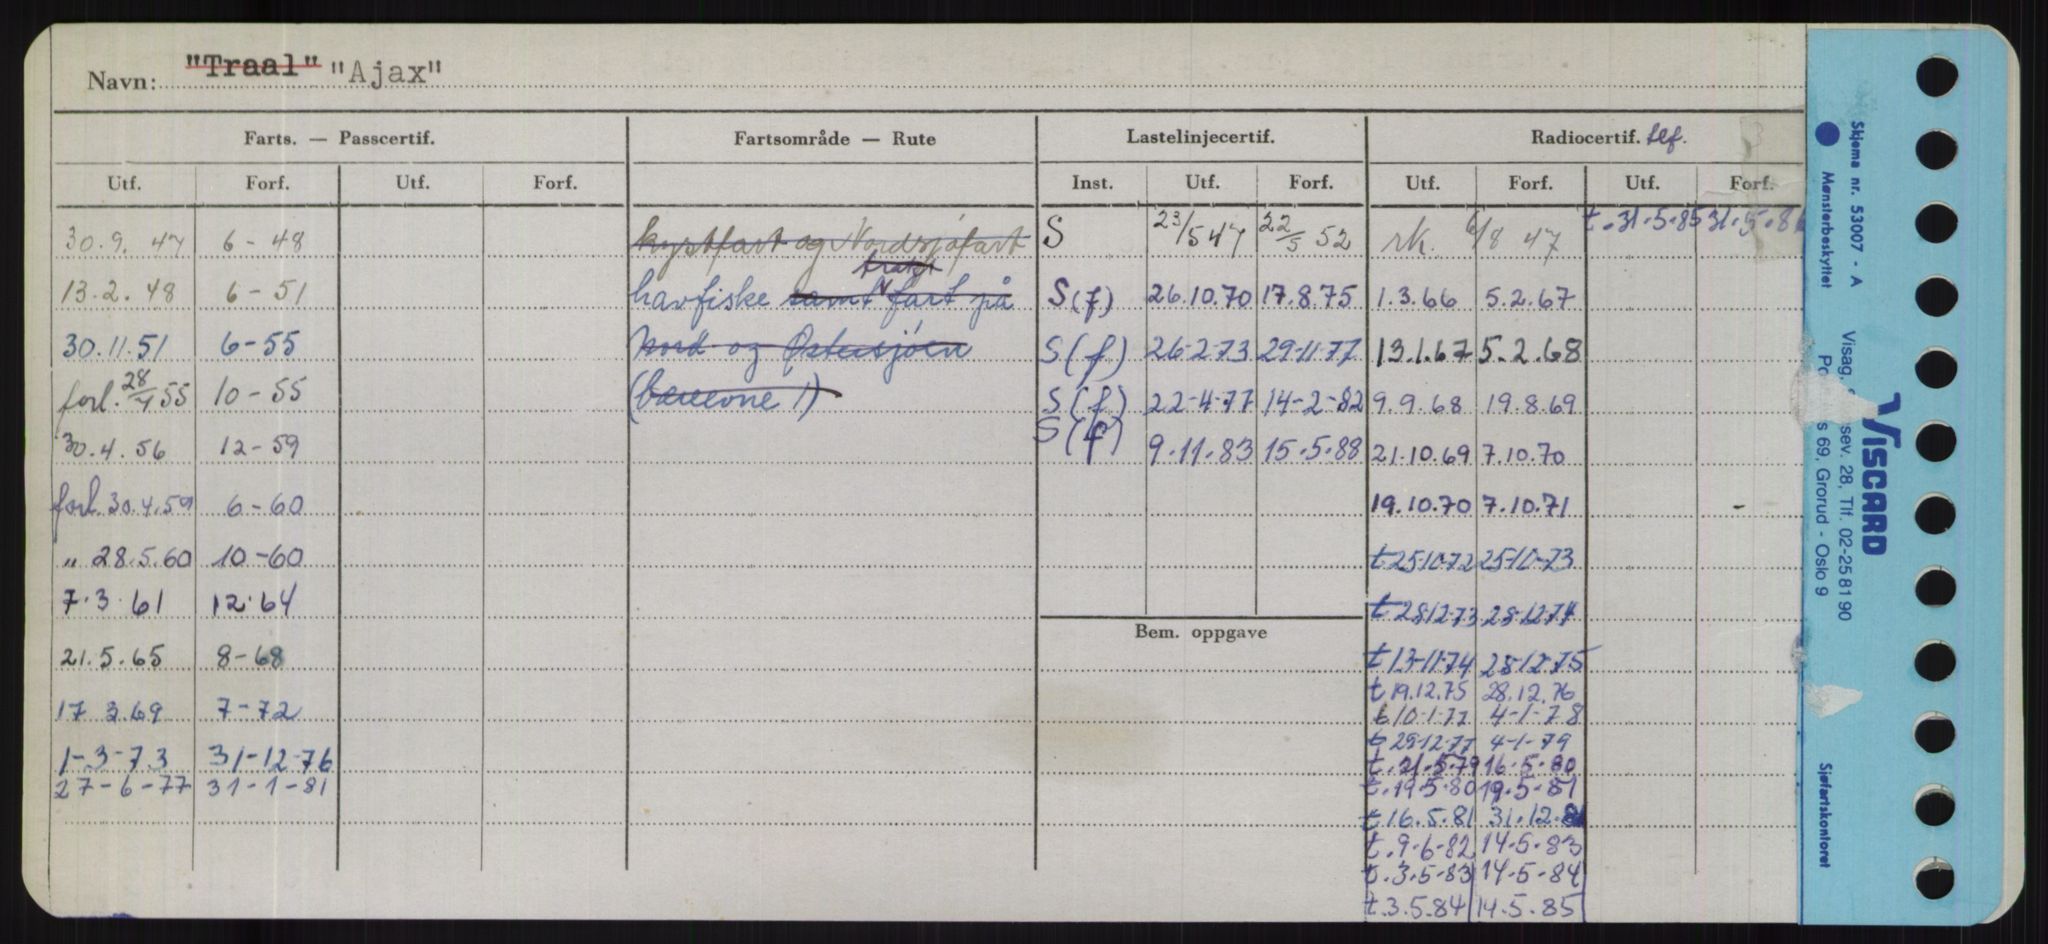 Navn: "Traal" "Ajax"
Farts. — Passcertif. Fartsområde — Rute Lastelinjecertif. Radiocertif. tlf.
Utf. Forf. Utf. Forf. Inst. Utf. Forf. Utf. Forf. Utf. Forf.
30.9. 47 6-48 kystfart og Nordsjøfart S 23/5 47 22/5 52 rk. 6/8 47 t.31.5.85 31.5.86
trål
13.2. 48 6-51 havfiske samt fart på S(f) 26.10.70 17.8.75 1.3.66 5.2.67
30.11.51 6-55 Nord og Østersjøen S(f) 26-2-73 29-11-77 13.1.67 5.2.68
forl. 28/4 55 10-55 (bæreevne 1) S(f) 22-4-77 14-2-82 9.9.68 19.8.69
30.4.56 12-59 S(f) 9.11.83 15.5.88 21.10.69 7.10.70
forl. 30.4.59 6-60 19.10.70 7.10.71
" 28.5.60 10-60 t 25-10-72 25-10-73
7.3.61 12.64 t 28-12-73 28-12-74
Bem. oppgave
21.5.65 8-68 t 13-11-74 28-12-75
t 19.12.75 28.12.76
17 3.69 7-72 t 10-1-77 4-1-78
t 29-12-77 4-1-79
1-3-73 31-12-76 t.21.5.79 16.5.80
27-6-77 31-1-81 t.19.5.80 19.5.81
t 16.5.81 31.12.81
t.9-6-82 14-5-83
t.3.5-83 14-5-84
t.3.5.84 14.5.85
Skjema nr. 53007 - A
Mønsterbeskyttet
Visag,
sev. 28, Tlf. 02-25 81 90
s 69, Grorud - Oslo 9
VISCARD
Sjøfartskontoret